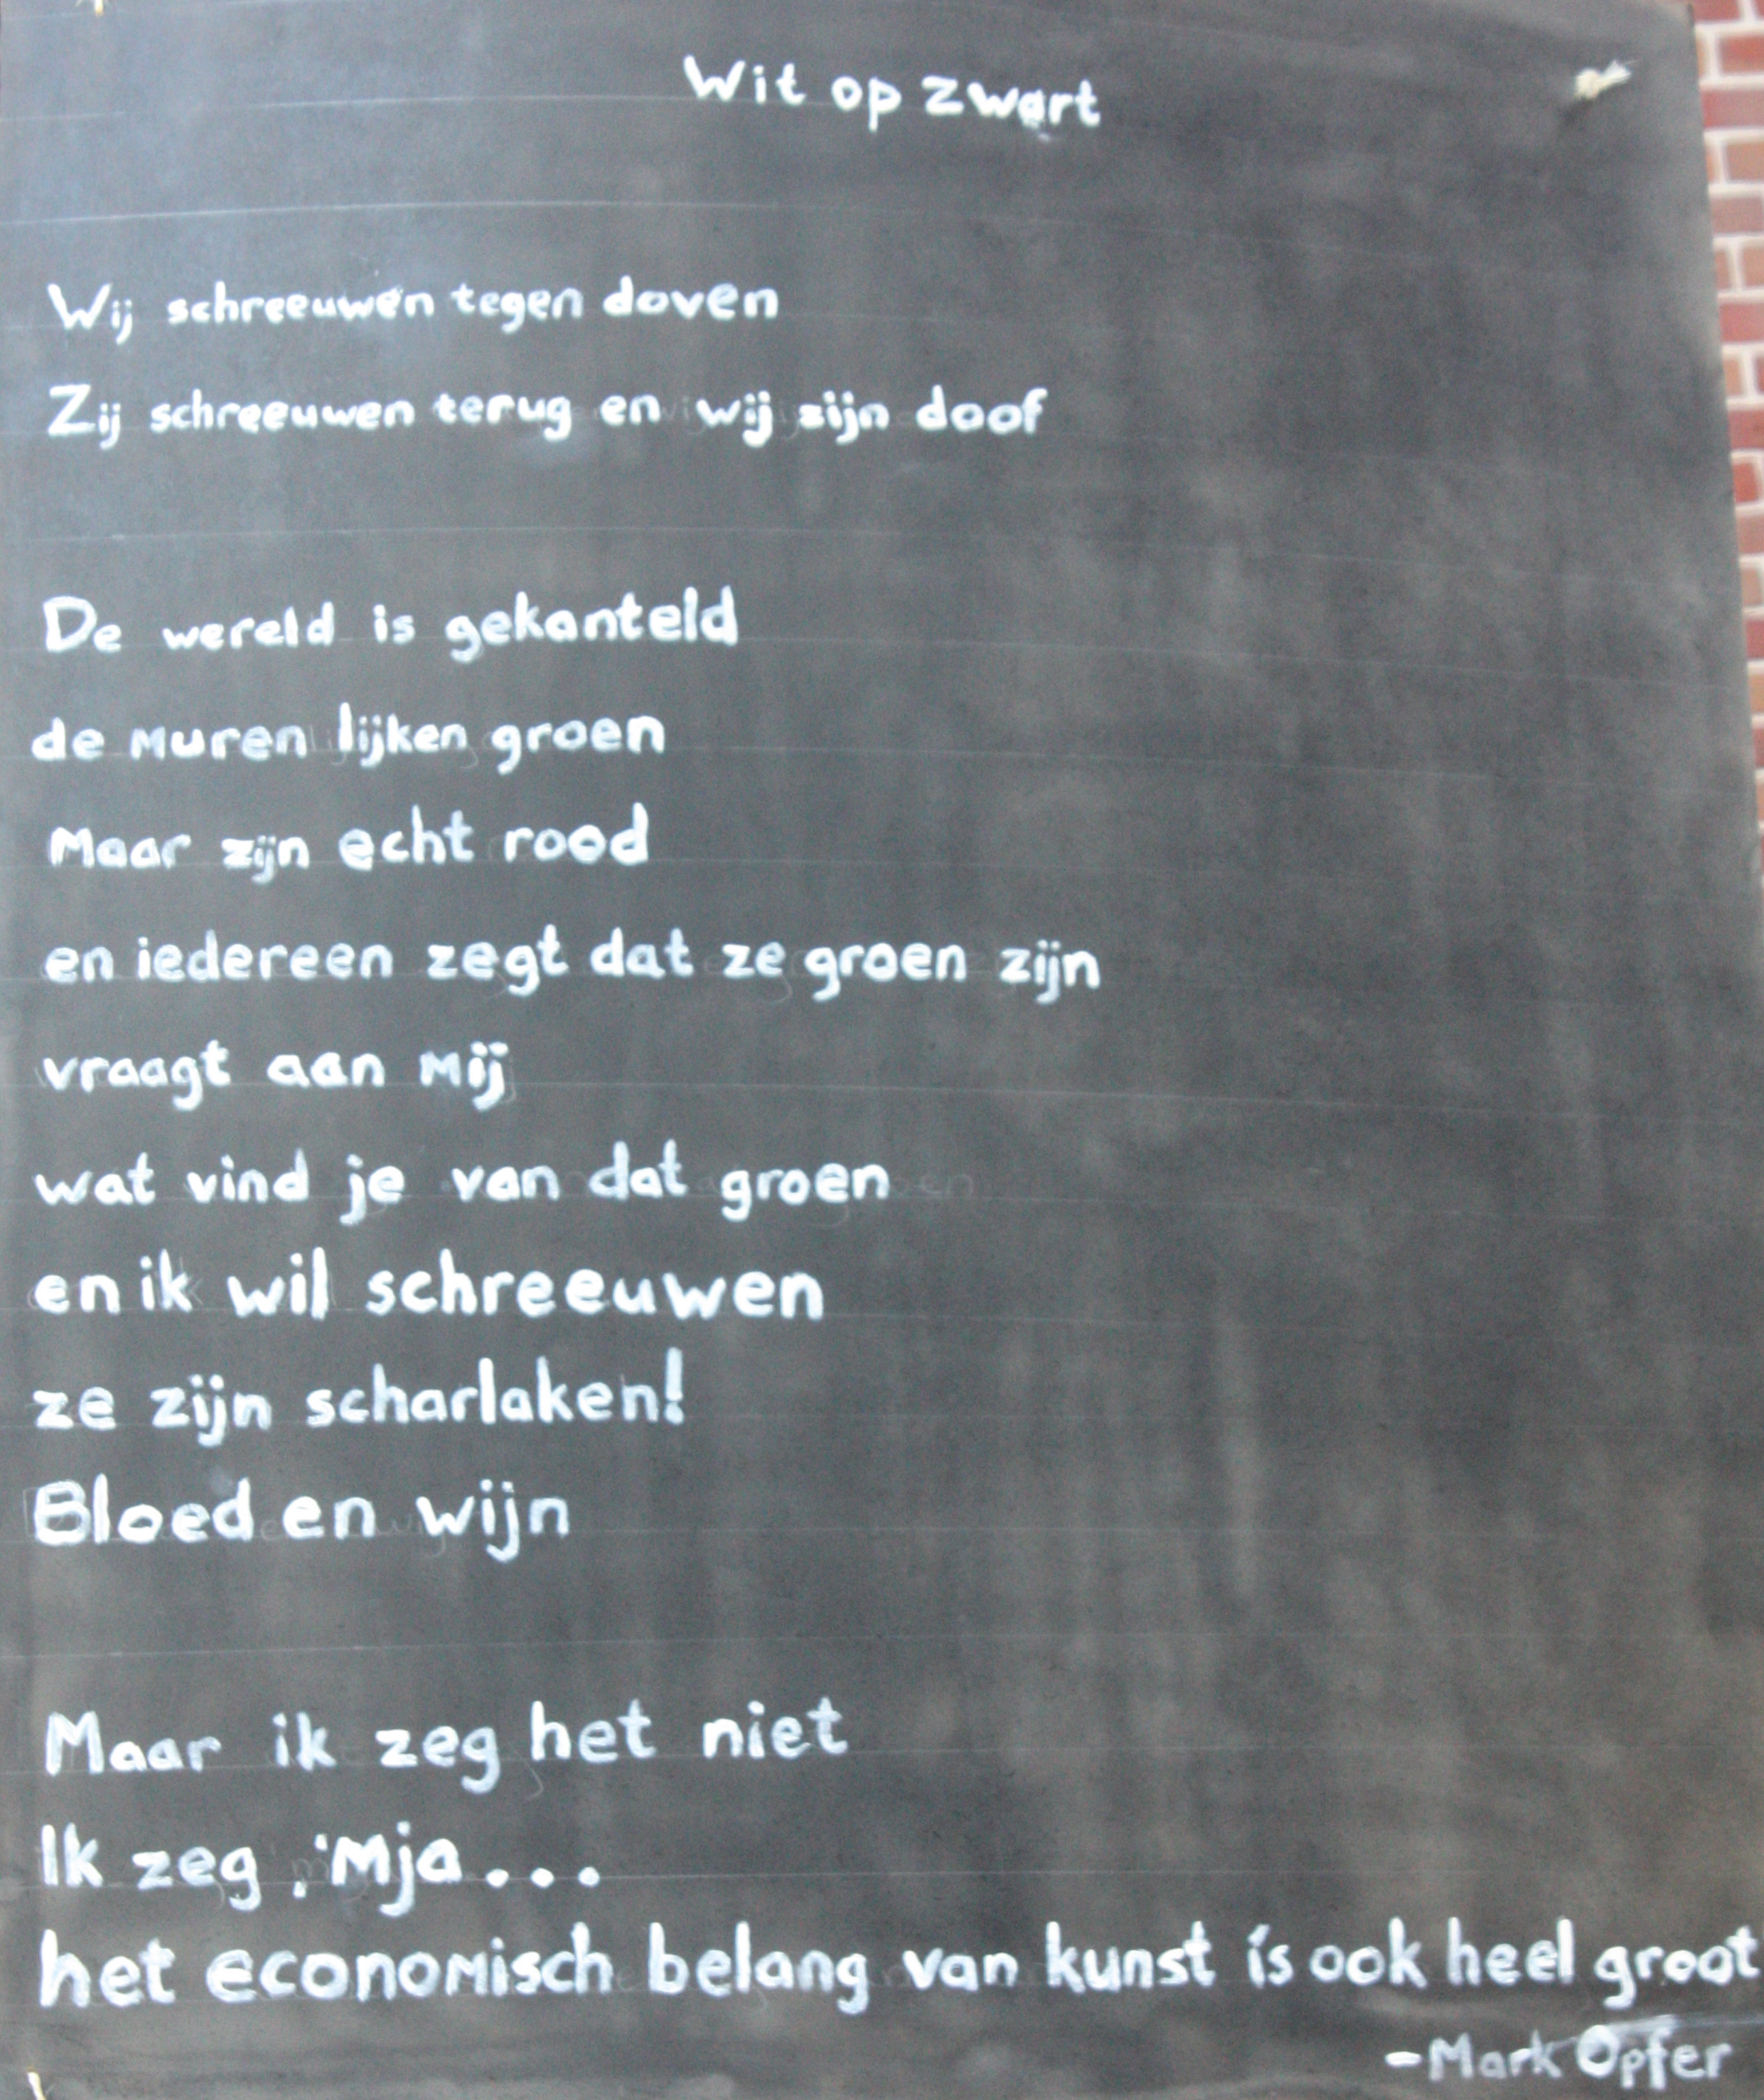 Wit op zwart
Wij schreeuwen tegen doven
Zij schreeuwen terug en wij zijn doof
De wereld is gekanteld
de muren lijken groen
Maar zijn echt rood
en iedereen zegt dat ze groen zijn
vraagt aan mij
wat vind je van dat groen
en ik wil schreeuwen
ze zijn scharlaken!
Bloed en wijn
Maar ik zeg het niet
Ik zeg : 'Mja...
het economisch belang van kunst ís ook heel groot
-Mark Opfer